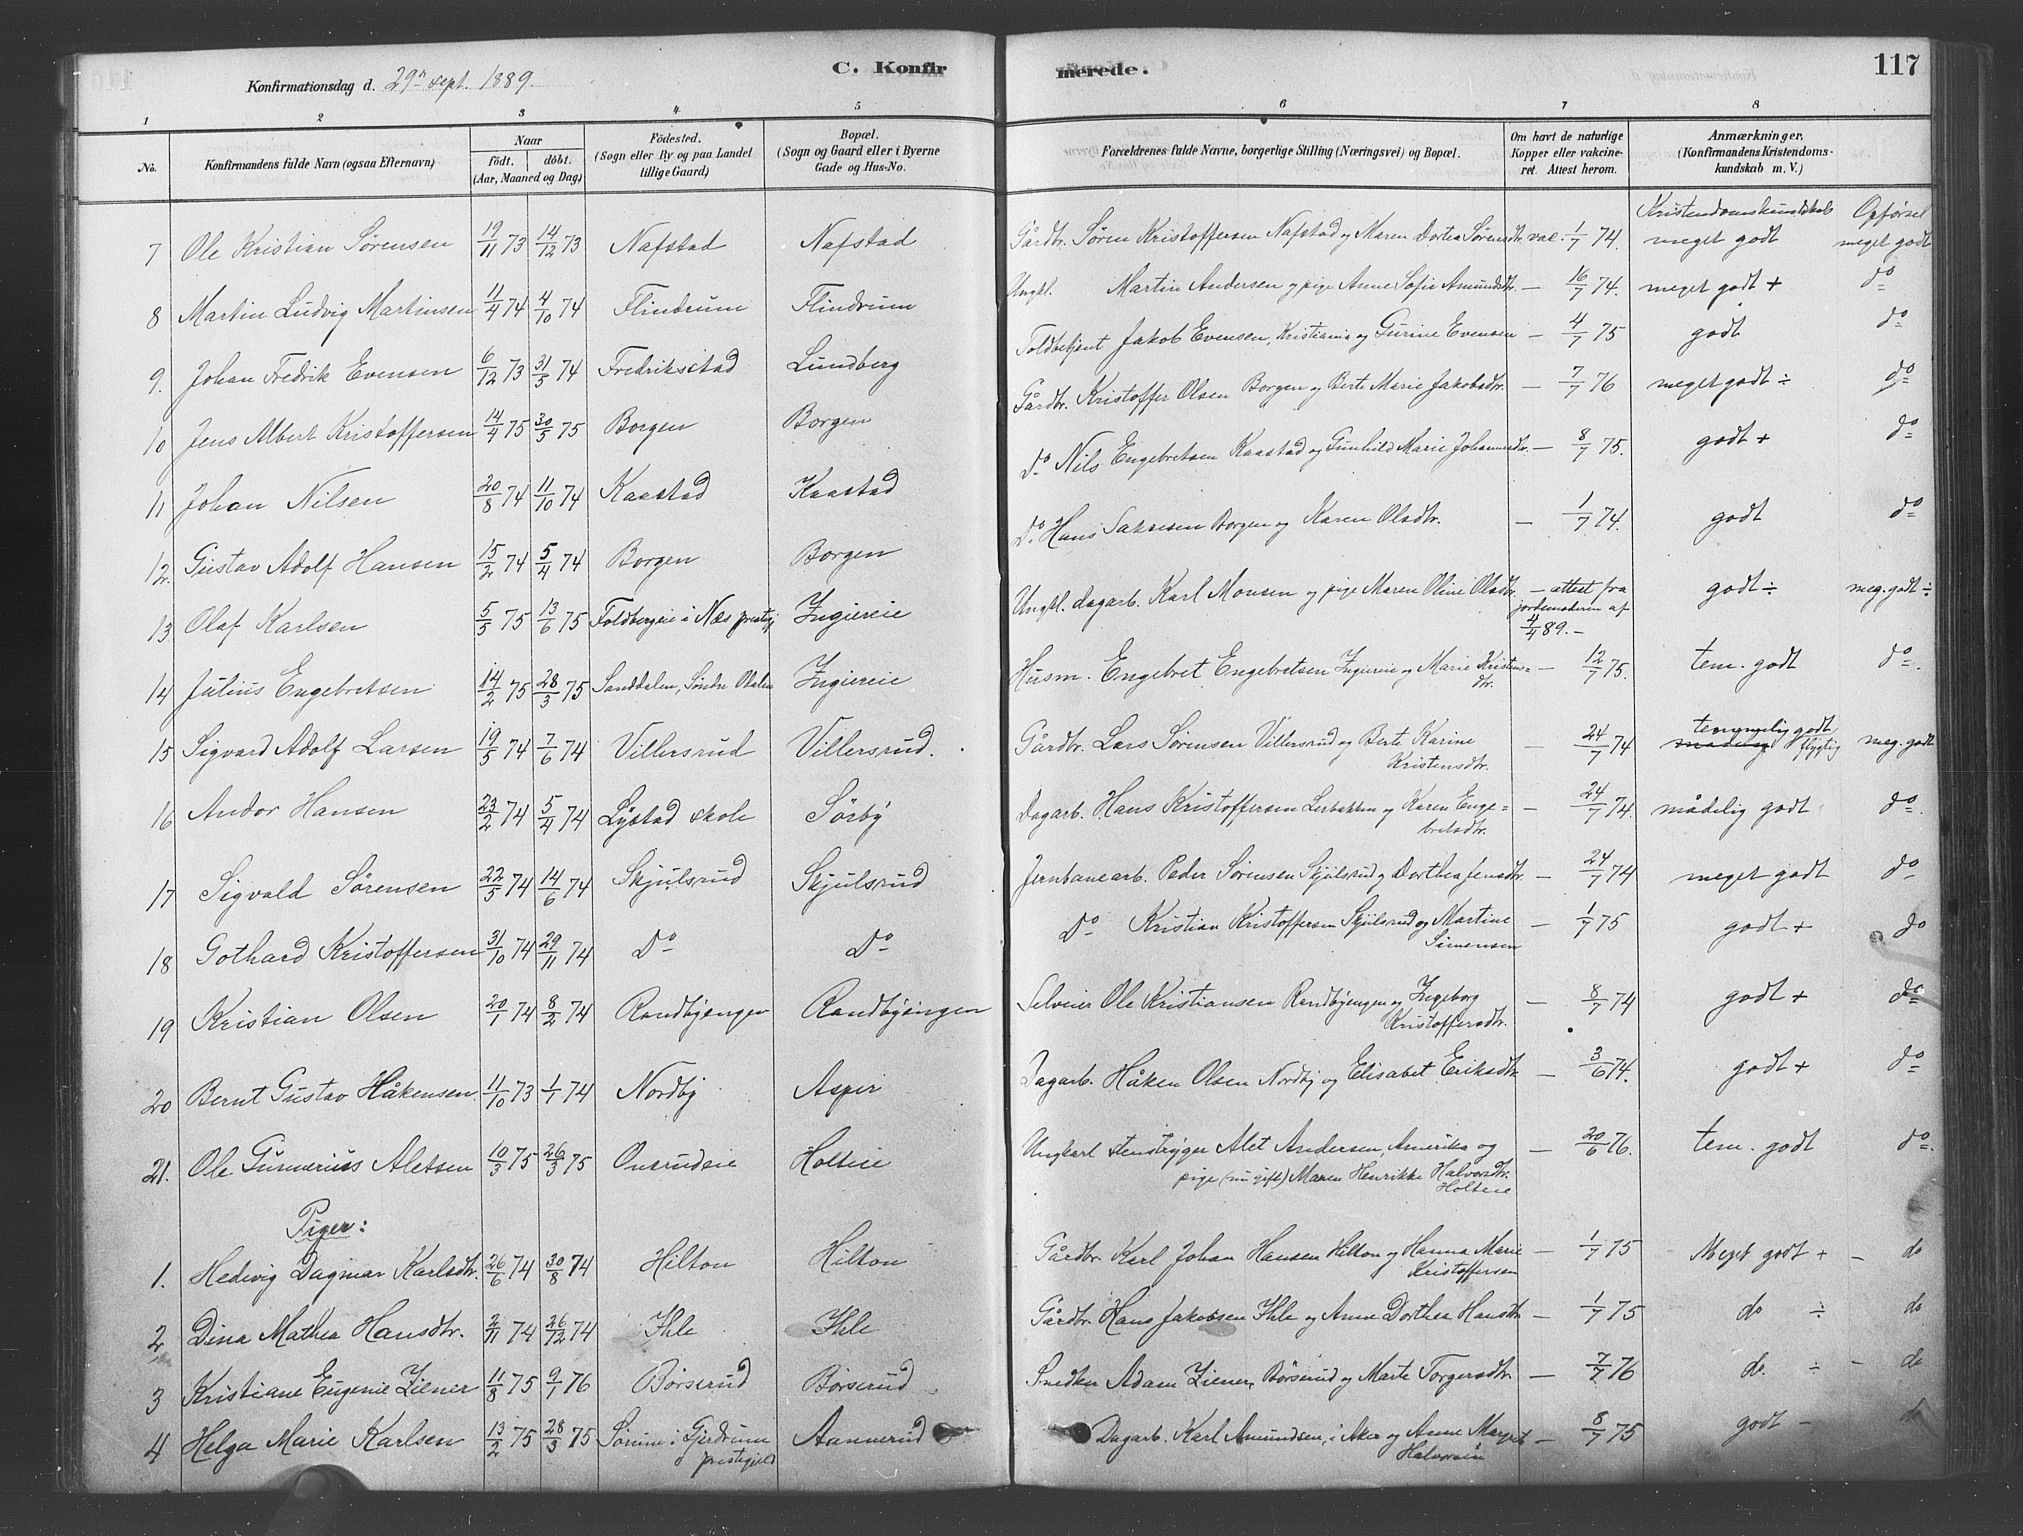 Konfirmationsdag d. 29n sept. 1889.
C. Konfir merede.
117
1 2 3 4 5 6 7 8
No.
Konfirmandens fulde Navn (ogsaa Efternavn)
Naar
födt. döbt.
(Aar, Maaned og Dag)
Födested.
(Sogn eller By og paa Landet
tillige Gaard)
Bopæl.
(Sogn og Gaard eller i Byerne
Gade og Hus-No.
Forældrenes fulde Navne, borgerlige Stilling (Næringsvei) og Bopæl.
Om havt de naturlige
Kopper eller vakcine-
ret. Attest herom.
Anmærkninger.
(Konfirmandens Kristendoms-
kundskab m. V.)
Kristendomskundskab Opførsel
7 Ole Kristian Sørensen 19/11 73 14/12 73 Nafstad Nafstad Gårdbr. Søren Kristoffersen Nafstad og Maren Dortea Sørensdtr. vac. 1/7 74. meget godt meget godt
8 Martin Ludvig Martinsen 11/4 74 4/10 74 Flindrum Flindrum Ungkl. Martin Andersen og pige Anne Sofie Amundsdtr. — 16/7 74. meget godt + do
9. Johan Fredrik Evensen 6/12 73 31/5 74 Fredrikstad Lundberg Toldbetjent Jakob Evensen, Kristiania og Gurine Evensen — 4/7 75 godt do
10 Jens Albert Kristoffersen 14/4 75 30/5 75 Borgen Borgen Gårdbr. Kristoffer Olsen Borgen og Berte Marie Jakobsdtr. — 7/7 76 meget godt ÷ do
11 Johan Nilsen 20/8 74 11/10 74 Kaastad Kaastad Do Nils Engebretsen Kaastad og Gunhild Marie Johannesdtr. — 8/7 75. godt + do
12. Gustav Adolf Hansen 15/2 74 5/4 74 Borgen Borgen Do Hans Saksesen Borgen og Karen Olsdtr. — 1/7 74. godt do
13 Olaf Karlsen 5/5 75 13/6 75 Foldbergeie i Næs prestgj. Ingiereie Ungkl. dagarb. Karl Monsen og pige Maren Oline Olsdtr. — attest fra godt ÷ meg. godt ÷
jordemoderen af
4/4 89. —
14 Julius Engebretsen 14/2 75 28/3 75 Sanddalen, Søndre Odalen Ingiereie Husm. Engebret Engebretsen Ingiereie og Marie Kristens= — 12/7 75. tem. godt do
dtr.
15 Sigvard Adolf Larsen 19/5 74 7/6 74 Villersrud Villersrud. Gårdbr. Lars Sørensen Villersrud og Berte Karine — 24/7 74 temmelig godt flygtig meg. godt
Kristensdtr.
16 Andor Hansen 23/2 74 5/4 74 Lystad skole Sørby Dagarb. Hans Kristoffersen Lerbakken og Karen Enge= — 24/7 74. mådelig godt do
bretsdtr.
17 Sigvald Sørensen 22/5 74 14/6 74 Skjulsrud Skjulsrud Jernbanearb. Peder Sørensen Skjulsrud og Dorthea Jensdtr. — 24/7 74 meget godt do
18 Gothard Kristoffersen 31/10 74 29/11 74 Do Do Do Kristian Kristoffersen Skjulsrud og Martine — 1/7 75 godt + do
Simensen
19 Kristian Olsen 20/1 74 8/2 74 Randbyengen Randbyengen Selveier Ole Kristiansen Randbyengen og Ingeborg — 8/7 74 godt + do
Kristoffersdtr.
20 Bernt Gustav Håkensen 11/10 73 1/1 74 Nordby Asper Dagarb. Håken Olsen Nordby og Elisabet Eriksdtr. — 3/6 74. godt + do
21. Ole Gunnerius Aletsen 10/3 75 26/3 75 Onsrudeie Holteie Ungkarl stenstryger Alet Andersen, Amerika og — 20/6 76. tem. godt do
pige (nu gift) Maren Henrikke Halvorsdtr.
Holteie
Piger:
1. Hedvig Dagmar Karlsdtr. 26/6 74 30/8 74 Hilton Hilton Gårdbr. Karl Johan Hansen Hilton og Hanna Marie — 1/7 75 Meget godt + — do
Kristoffersen
2. Dina Mathea Hansdtr. 2/11 74 26/12 74 Ihle Ihle Gårdbr. Hans Jakobsen Ihle og Anne Dorthea Hansdtr. — 1/7 75 do ÷ do
3 Kristiane Eugenie Ziener 11/8 75 9/1 76 Børserud Børserud Snedker Adam Ziener, Børserud og Marte Torgersdtr. — 7/7 76 do. ÷ — do
4 Helga Marie Karlsen 13/2 75 28/3 75 Sørum i Gjerdrum Aannerud Dagarb. Karl Amundsen, i Aker og Anne Margret — 8/7 75 godt — do
prestegjeld Halvorsen